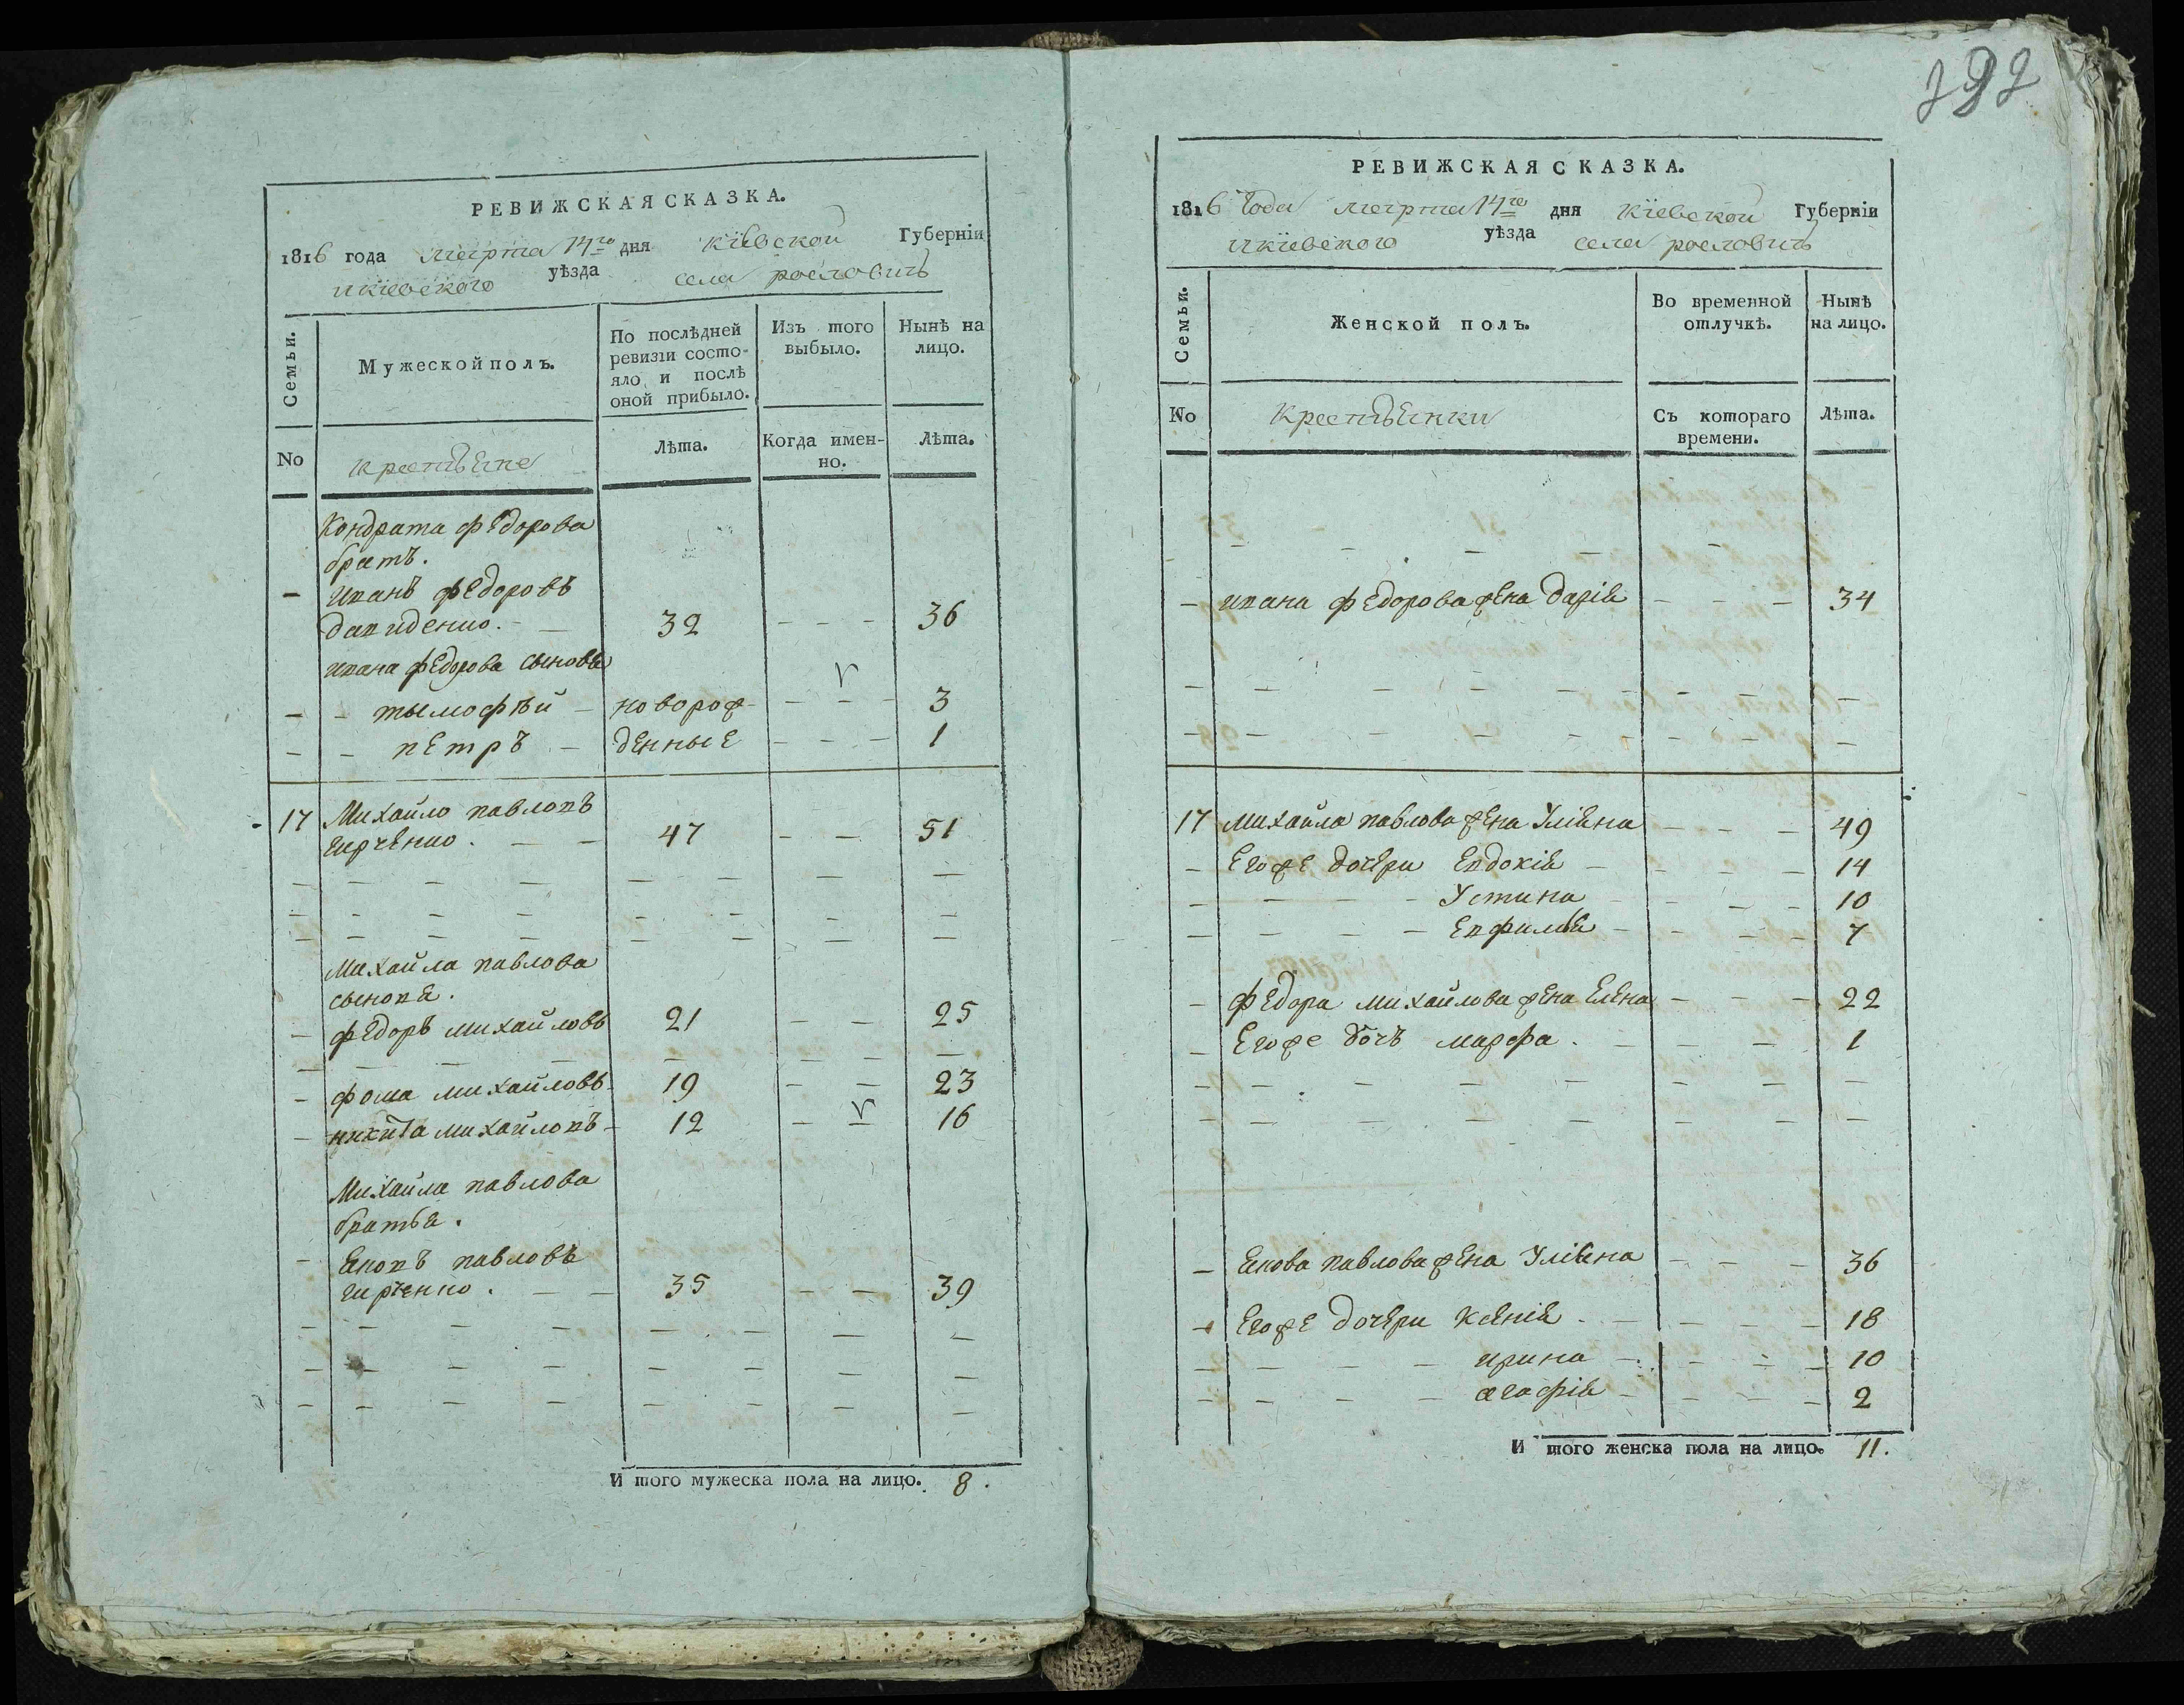 РЕВИЖСКАЯ СКАЗКА.
1816 года марта 14го дня Кіевской Губерніи
и кіевского уѣзда села рословичъ
Семьи.
Мужеской полъ.
По послѣдней ревизіи состояло и послѣ оной прибыло.
Изъ того выбыло.
Нынѣ на лицо.
No
крестьяне
Лѣта.
Когда именно.
Лѣта.
Кондрата федорова
братъ.
– иванъ федоровъ
давиденко. – – 32 – – – 36
ивана федорова сыновья
– – тымофѣй – новорож- – – – 3
– – петръ – денные – – – 1
17 Михайло павловъ
– – 47 – – 51
Михайла павлова
сыновья.
– федоръ михайловъ 21 – – 25
– фома михайловъ 19 – – 23
– никита михайловъ – 12 – – 16
Михайла павлова
братья.
– яковъ павловъ
– – 35 – – 39
И того мужеска пола на лицо. 8.
292
РЕВИЖСКАЯ СКАЗКА.
1816 года марта 14го дня кіевской Губерніи
и кіевского уѣзда села рословичъ
Семьи.
Женской полъ.
Во временной отлучкѣ.
Нынѣ на лицо.
No
Крестьянки
Съ котораго времени.
Лѣта.
– ивана федорова жена дарія – – – 34
17 михайла павлова жена Уліяна – – – 49
– Егоже дочери Евдокія – – – – 14
– – – – – Устина – – – 10
– – – – – Евфимія – – – – 7
– федора михайлова жена Елена – – – 22
– Егоже дочь марфа. – – – – 1
– якова павлова жена Уліяна – – – 36
– Егоже дочери Ксенія. – – – – 18
– – – – – ирина – – – – 10
– – – – – агафія – – – – 2
И того женска пола на лицо. 11.